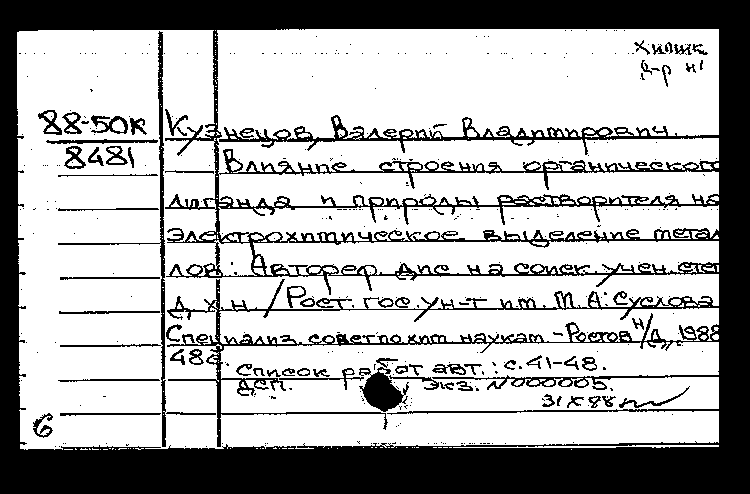 Химик
д-р н
88-50К Кузнецов, Валерий Владимирович.
8481 Влияние строения органического
лиганда и природы растворителя на
электрохимическое выделение метал-
лов: Автореф. дис. на соиск. учен. степ
д. х. н. / Рост. гос. ун-т им. М. А. Суслова
Специализ. совет по хим. наукам - Ростов н/Д, 1988
48с.
Список работ авт.: с. 41-48.
ДСП. Экз. N000005.
31 X 88
6